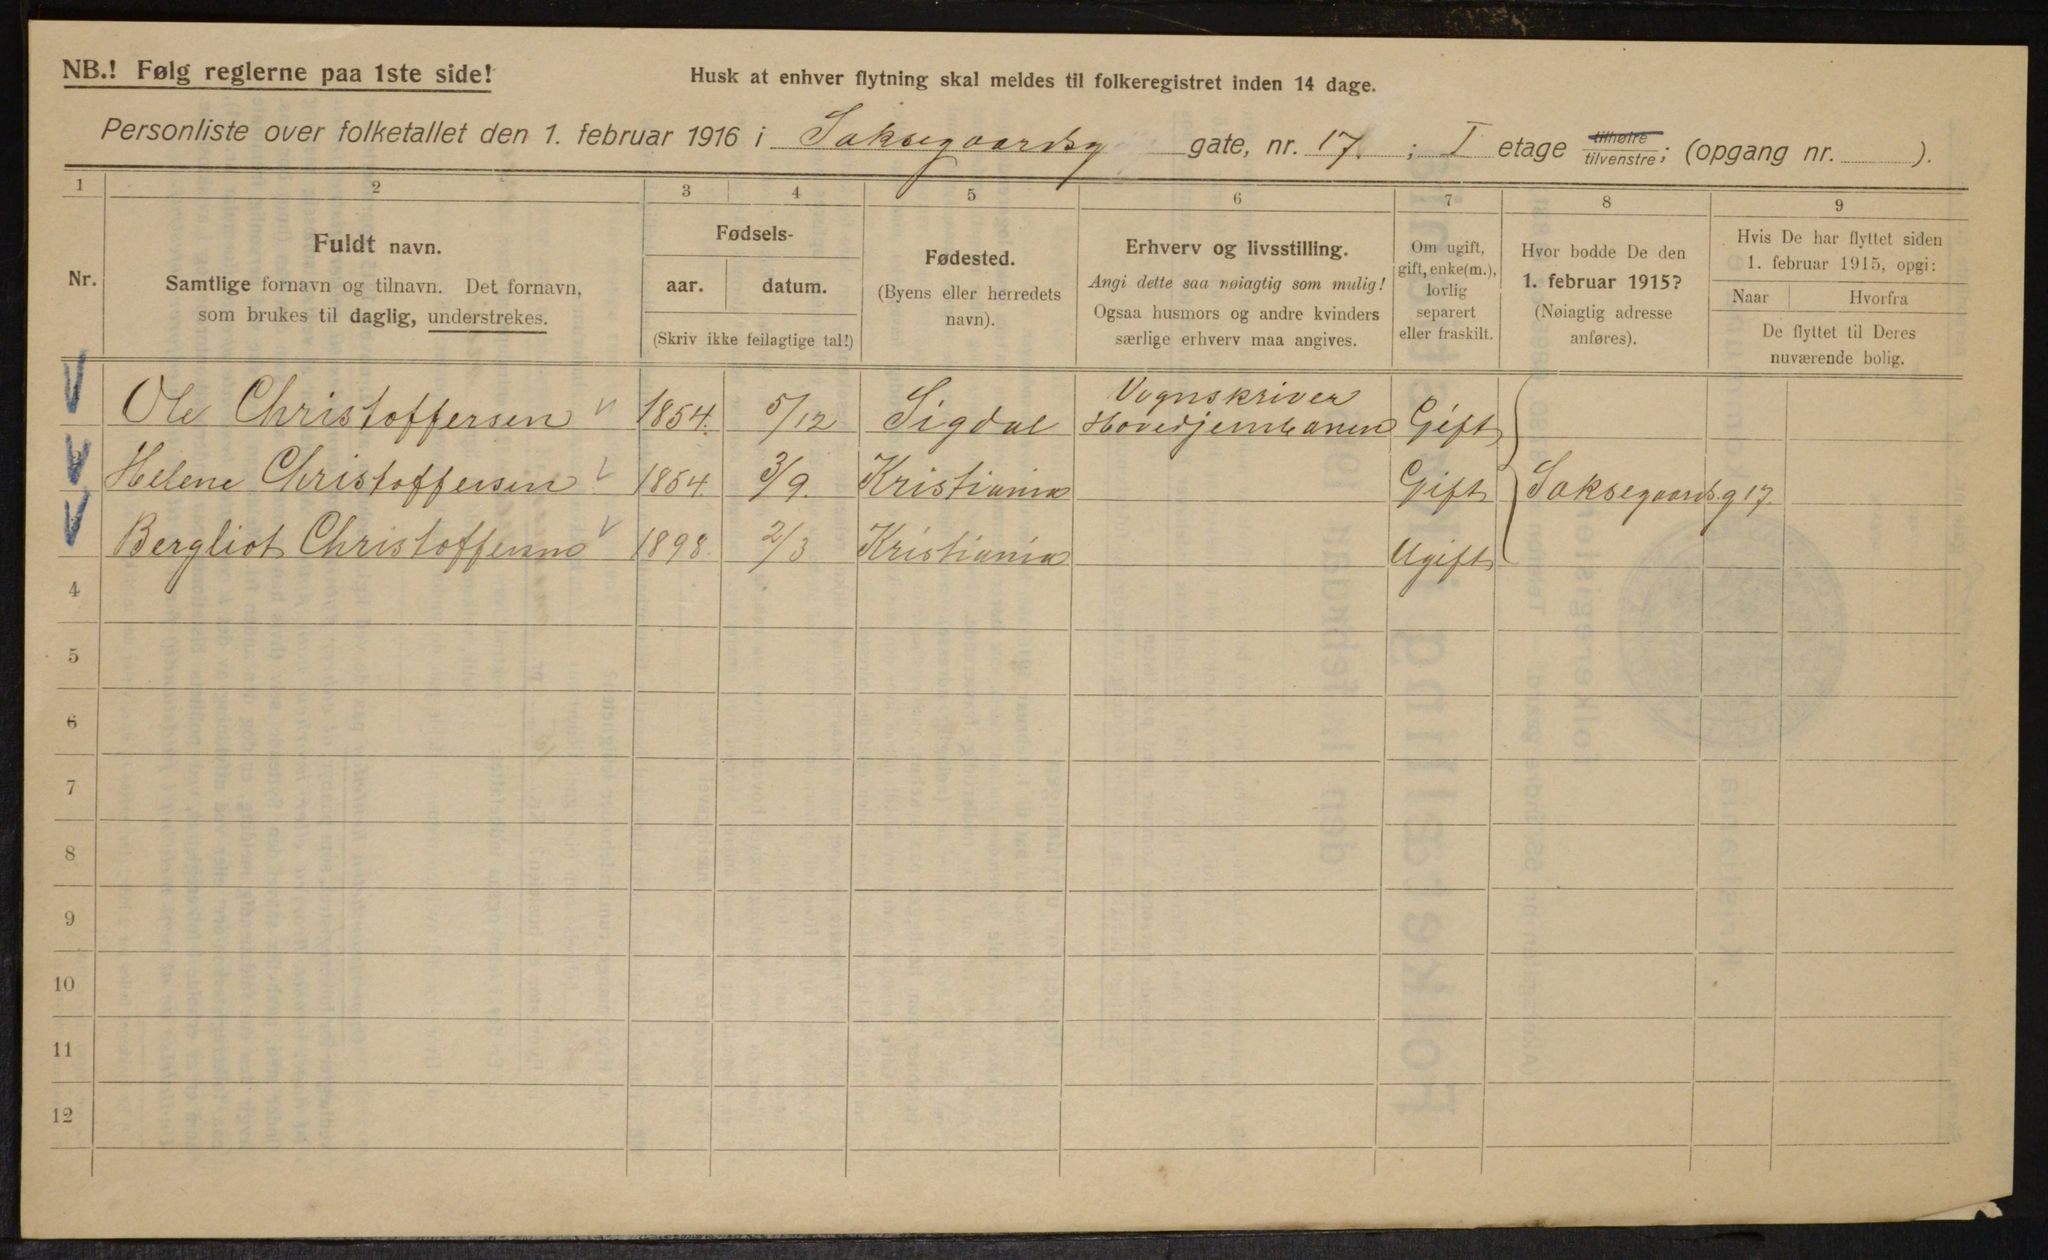 NB.! Følg reglerne paa 1ste side!
Husk at enhver flytning skal meldes til folkeregistret inden 14 dage.
Personliste over folketallet den 1. februar 1916 i Saksegaardsg gate, nr. 17. ; I etage tilhøire/tilvenstre; (opgang nr. ).
1 2 3 4 5 6 7 8 9
Nr.
Fuldt navn.
Samtlige fornavn og tilnavn. Det fornavn,
som brukes til daglig, understrekes.
Fødsels-
aar. datum.
(Skriv ikke feilagtige tal!)
Fødested.
(Byens eller herredets
navn).
Erhverv og livsstilling.
Angi dette saa nøiagtig som mulig!
Ogsaa husmors og andre kvinders
særlige erhverv maa angives.
Om ugift,
gift, enke(m.),
lovlig
separert
eller fraskilt.
Hvor bodde De den
1. februar 1915?
(Nøiagtig adresse
anføres).
Hvis De har flyttet siden
1. februar 1915, opgi:
Naar Hvorfra
De flyttet til Deres
nuværende bolig.
Ole Christoffersen 1854. 5/12 Sigdal Vognskriver Hovedjernbanen Gift
Helene Christoffersen 1854. 3/9. Kristiania Gift Saksegaardsg 17.
Bergliot Christoffersen 1898. 2/3 Kristiania Ugift
4
5
6
7
8
9
10
11
12